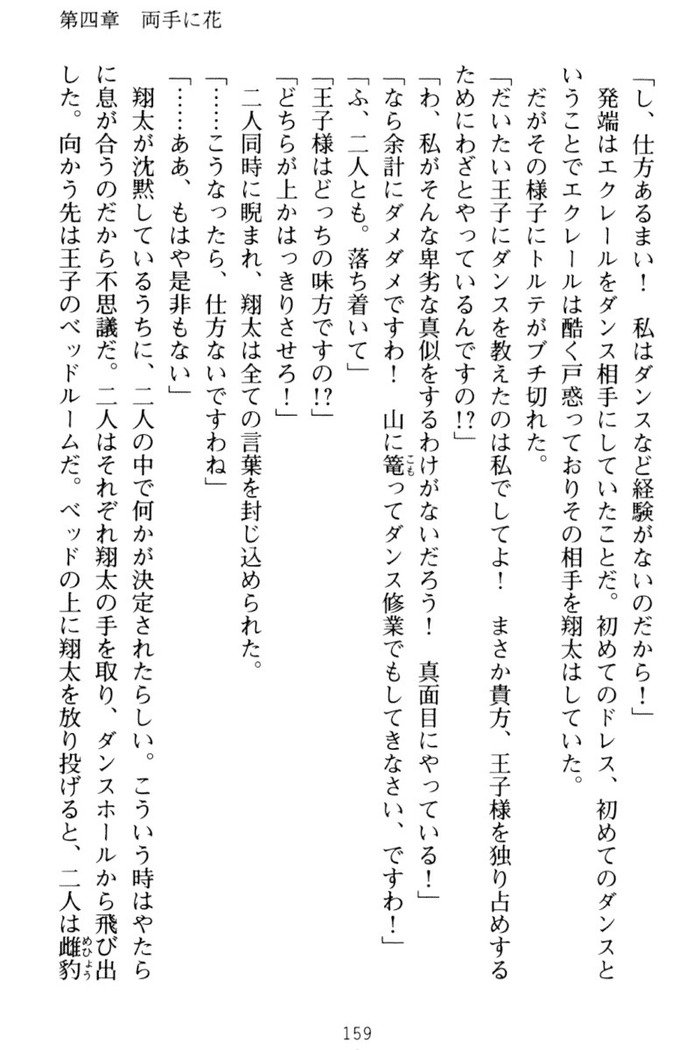 第四章　両手に花
「し、仕方あるまい！　私はダンスなど経験がないのだから！」
　発端はエクレールをダンス相手にしていたことだ。初めてのドレス、初めてのダンスと
いうことでエクレールは酷く戸惑っておりその相手を翔太はしていた。
　だがその様子にトルテがブチ切れた。
「だいたい王子にダンスを教えたのは私でしてよ！　まさか貴方、王子様を独り占めする
ためにわざとやっているんですの!?」
「わ、私がそんな卑劣な真似をするわけがないだろう！　真面目にやっている！」
「なら余計にダメダメですわ！　山に篭こもってダンス修業でもしてきなさい、ですわ！」
「ふ、二人とも。落ち着いて」
「王子様はどっちの味方ですの!?」
「どちらが上かはっきりさせろ！」
　二人同時に睨まれ、翔太は全ての言葉を封じ込められた。
「……こうなったら、仕方ないですわね」
「……ああ、もはや是非もない」
　翔太が沈黙しているうちに、二人の中で何かが決定されたらしい。こういう時はやたら
に息が合うのだから不思議だ。二人はそれぞれ翔太の手を取り、ダンスホールから飛び出
した。向かう先は王子のベッドルームだ。ベッドの上に翔太を放り投げると、二人は雌豹めひょう
159